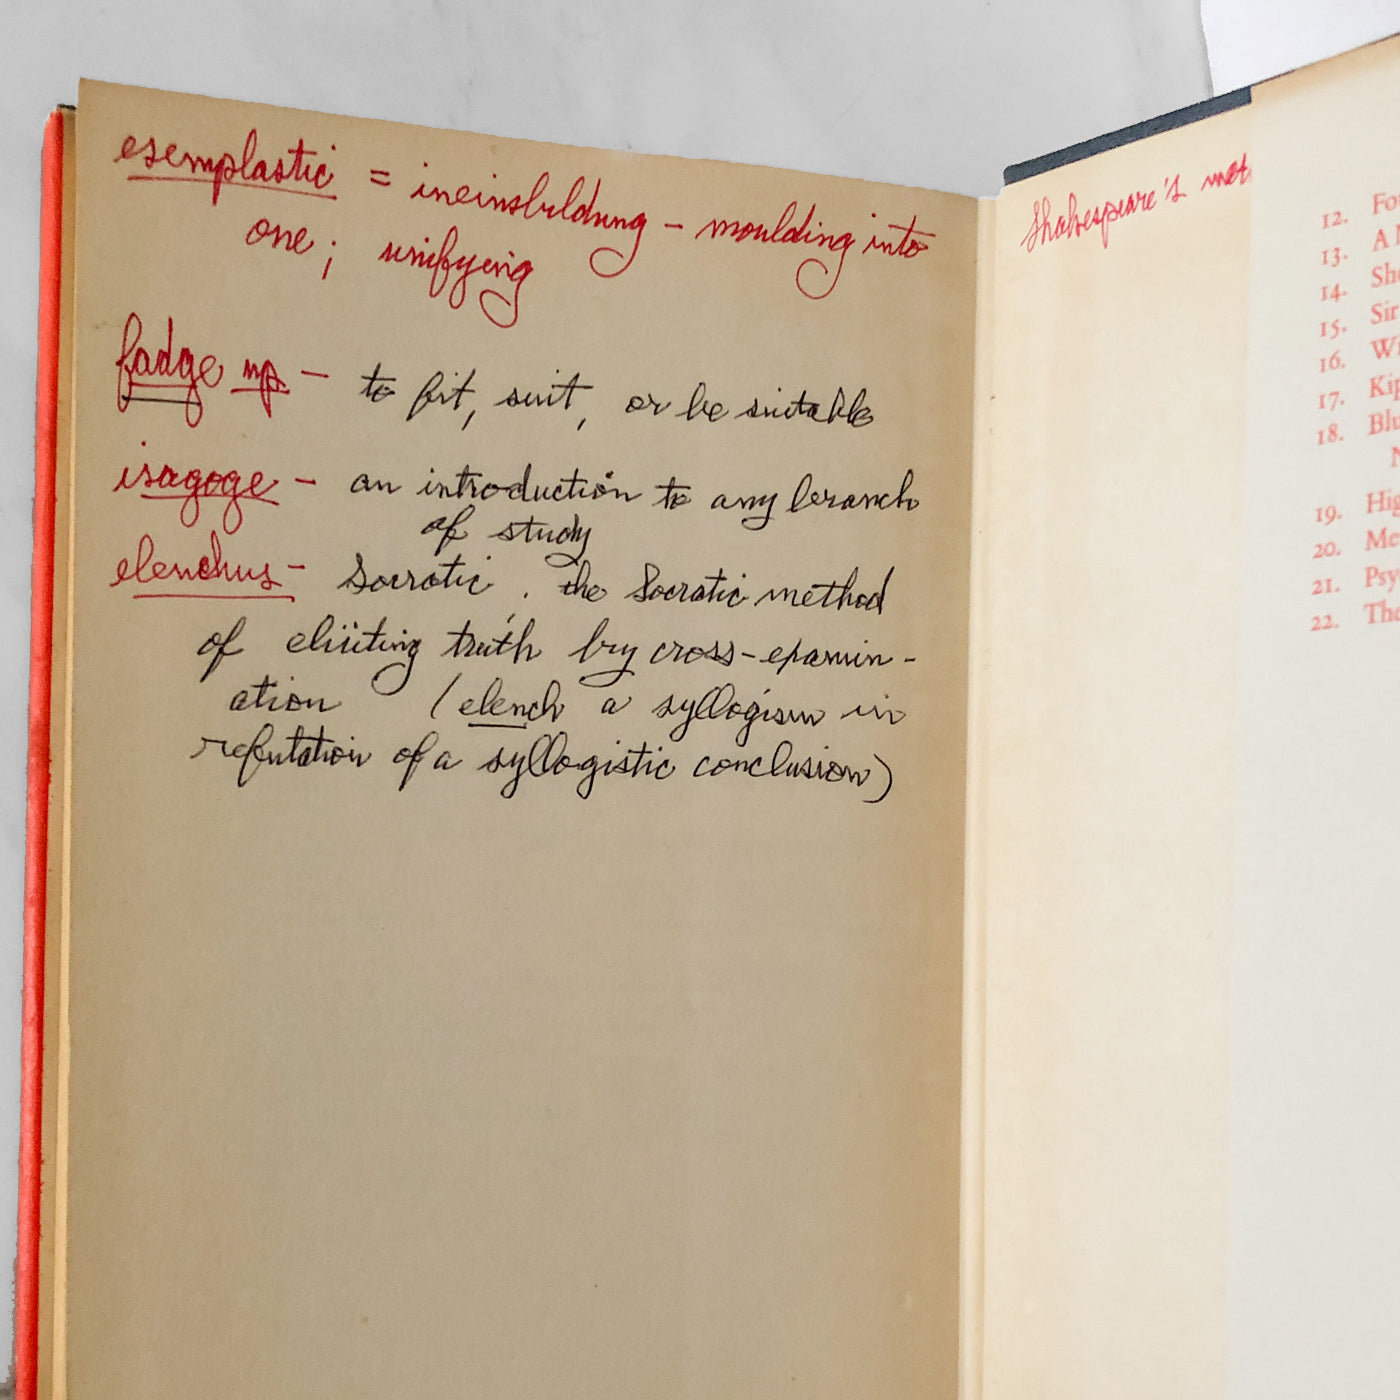 esemplastic = ineinsbildung - moulding into
one; unifying
fadge up - to fit, suit, or be suitable
isagoge - an introduction to any branch
of study
elenchus - Socratic, the Socratic method
of eliciting truth by cross-examin-
ation (elench a syllogism in
refutation of a syllogistic conclusion)
Shakespeare's met
12. Fo
13. A
14. Sh
15. Sir
16. Wi
17. Kip
18. Blu
N
19. Hig
20. Me
21. Psy
22. The